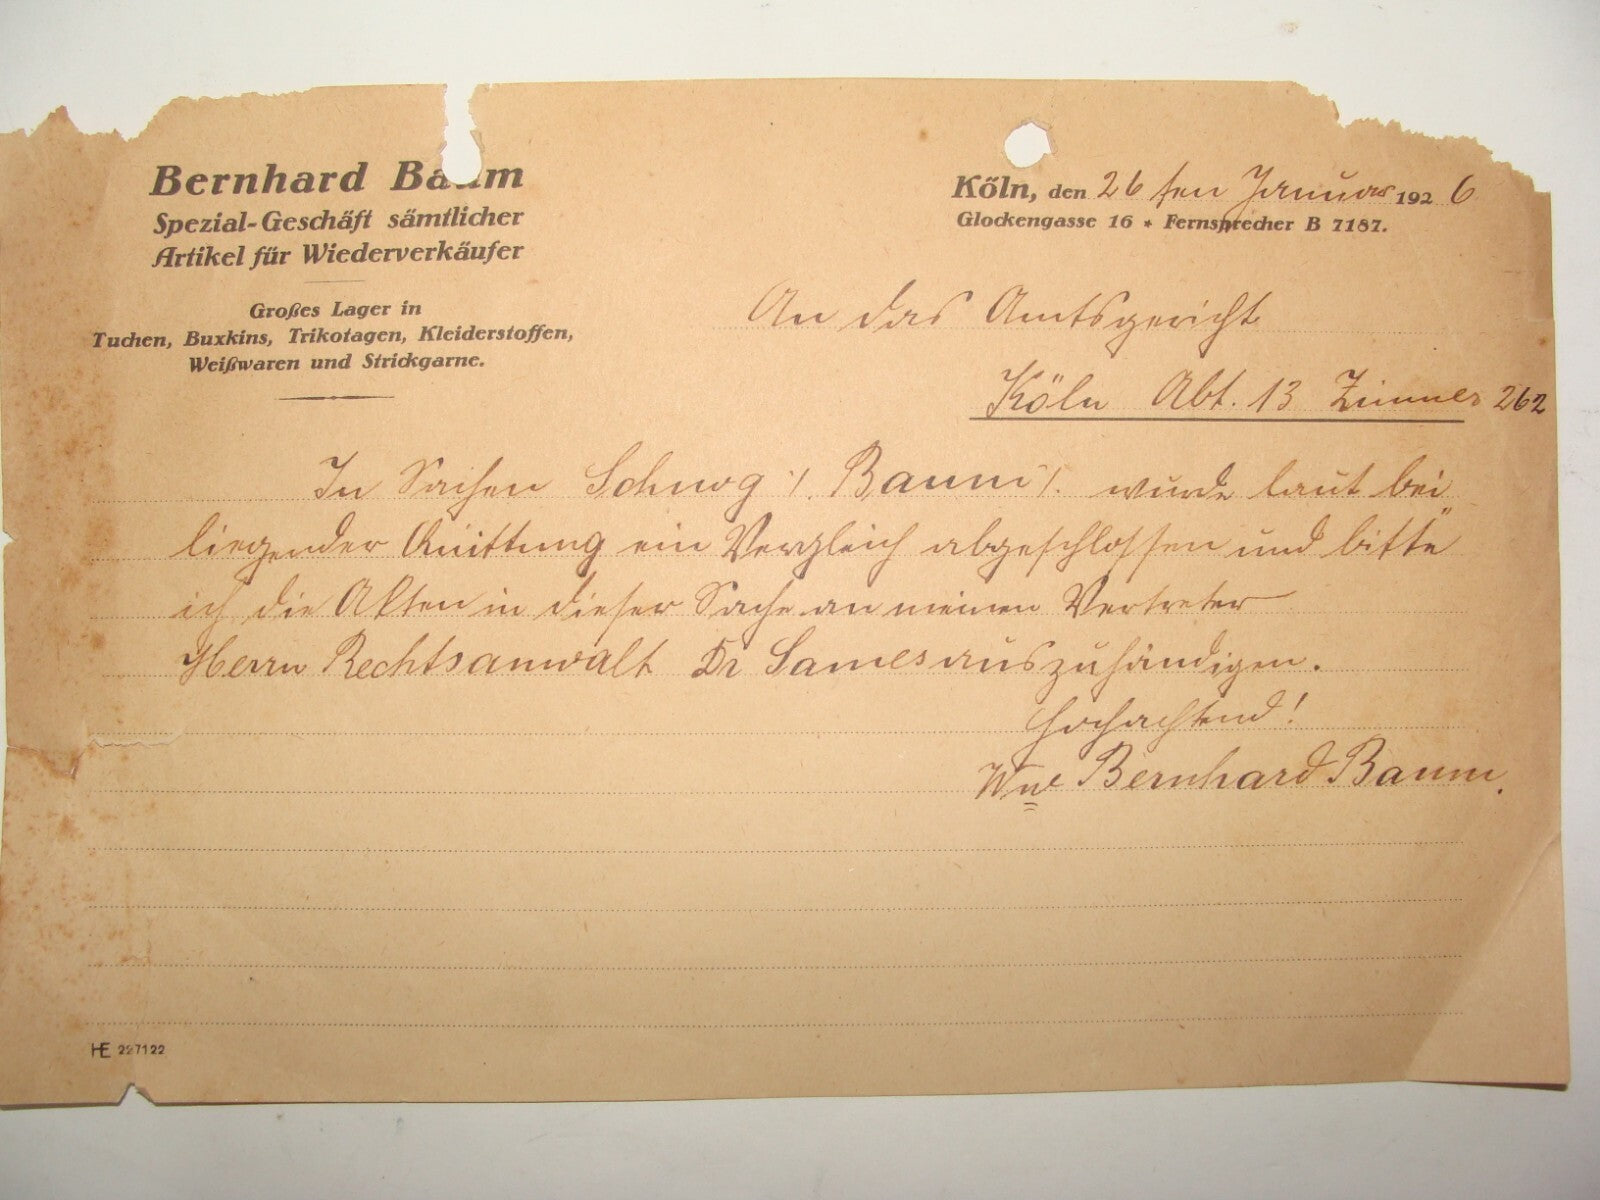 Bernhard Baum
Spezial-Geschäft sämtlicher
Artikel für Wiederverkäufer
Großes Lager in
Tuchen, Buxkins, Trikotagen, Kleiderstoffen,
Weißwaren und Strickgarne.
Köln, den 26 ten Januar 1926
Glockengasse 16 * Fernsprecher B 7187.
An das Amtsgericht
Köln Abt. 13 Zimmer 262
In Sachen ./. Baum ./. wurde laut bei
liegender Quittung ein Vergleich abgeschlossen und bitte
ich die Akten in dieser Sache an meinen Vertreter
Herrn Rechtsanwalt Dr Sames auszuhändigen.
Hochachtend!
Ww Bernhard Baum.
HE 227122